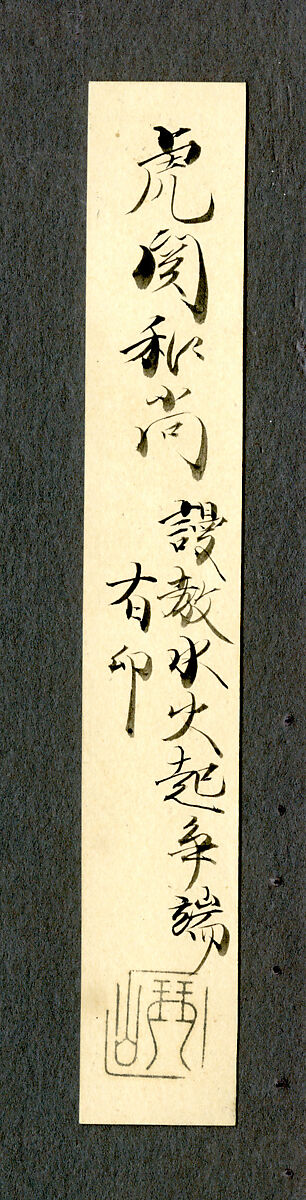 虎関和尚
謾教水火起争端
有印
琴山